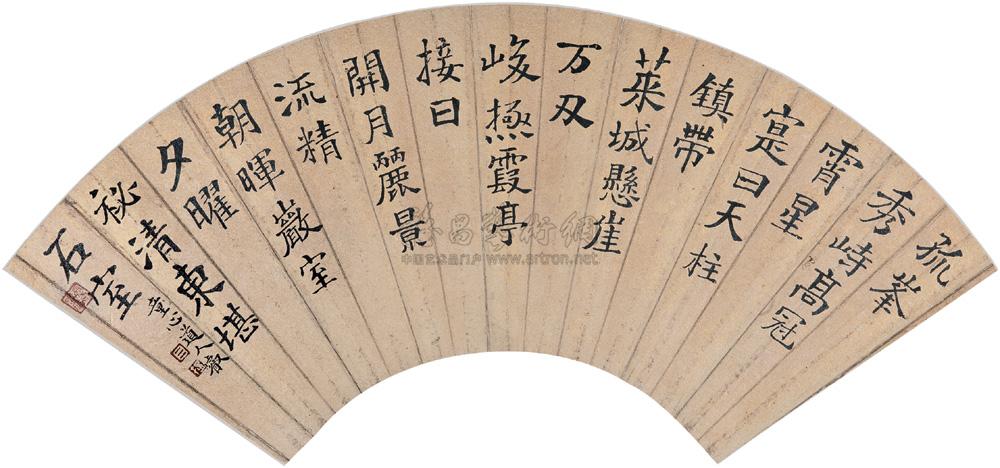 孤峯
秀峙高冠
霄星
寔曰天柱
鎮帶
萊城懸崖
万刄
峻極霞亭
接日
開月麗景
流精
朝暉巖室
夕曜
祕清東堪
石室
童心道人
雅昌藝術網
www.artron.net